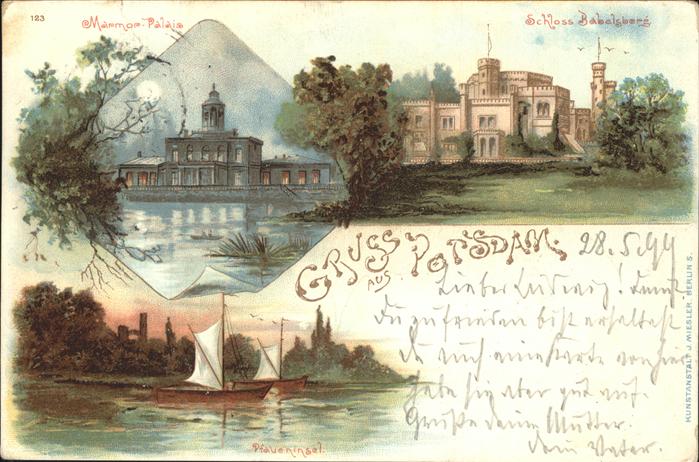 123
Marmor-Palais
Schloss Babelsberg
GRUSS AUS POTSDAM.
28.5.99
Lieber Ludwig! Damit
Du zufrieden bist erhältst
Du auch eine Karte von hier
hebe sie aber gut auf.
Grüße Deine Mutter.
Dein Vater.
Pfaueninsel.
KUNSTANSTALT J. MIESLER, BERLIN S.